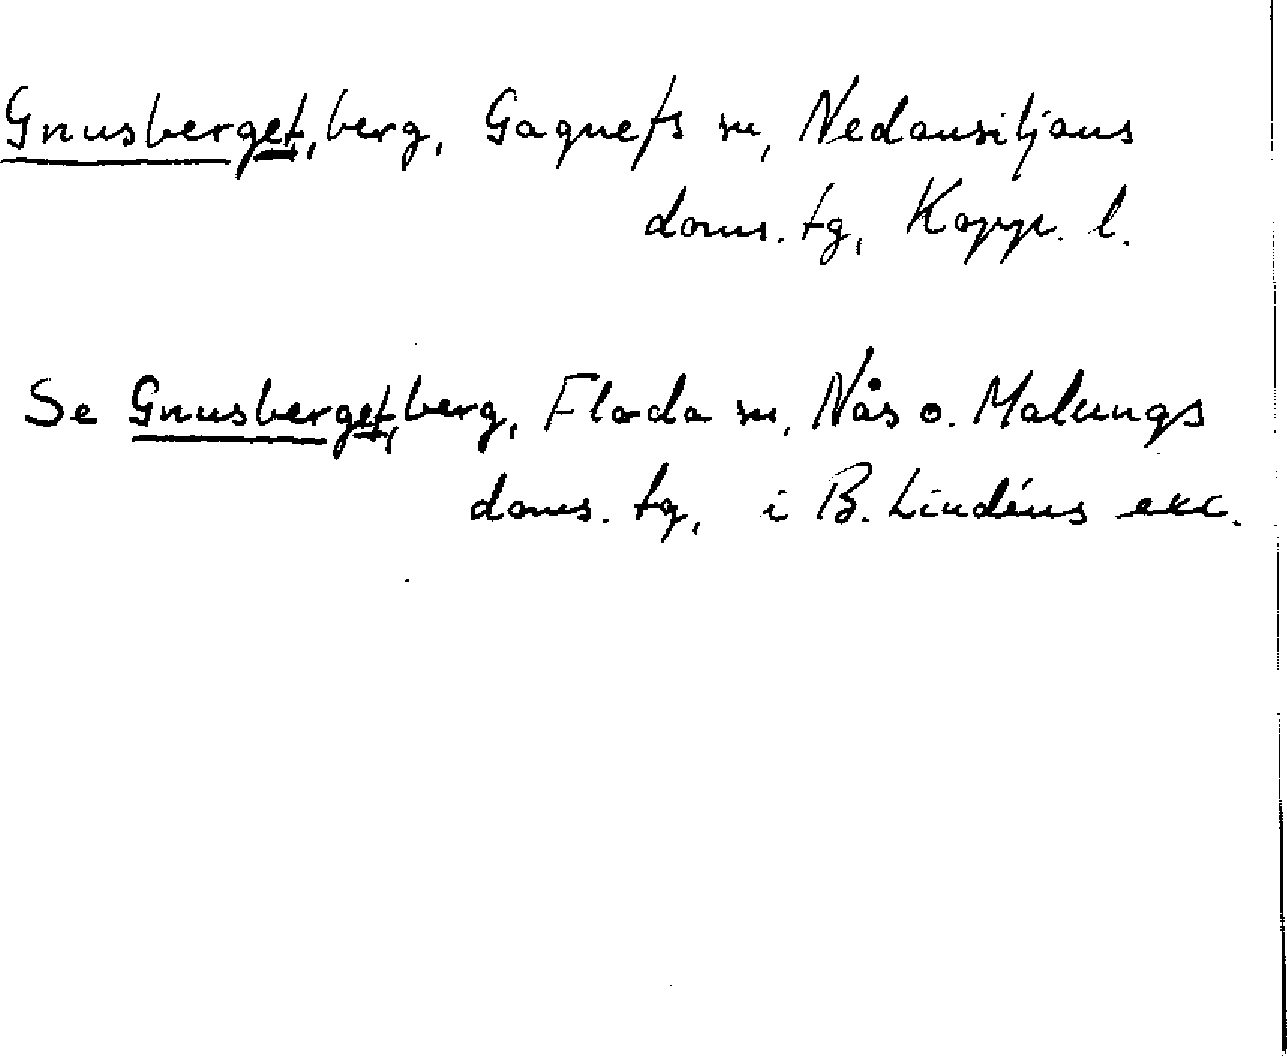 Gnusberget, berg, Gagnefs sn, Nedansiljans
doms. tg, Kopp. l.
Se Gnusberget, berg, Floda sn, Nås o. Malungs
doms. tg, i B. Lindéns exc.